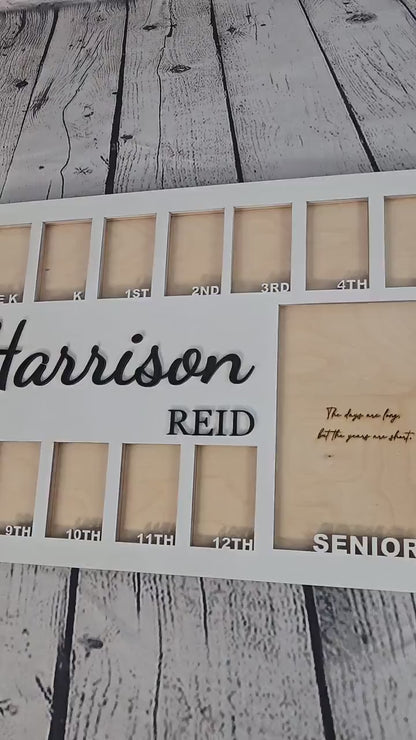 E K K 1ST 2ND 3RD 4TH
Harrison
REID
The days are long,
but the years are short.
9TH 10TH 11TH 12TH
SENIOR